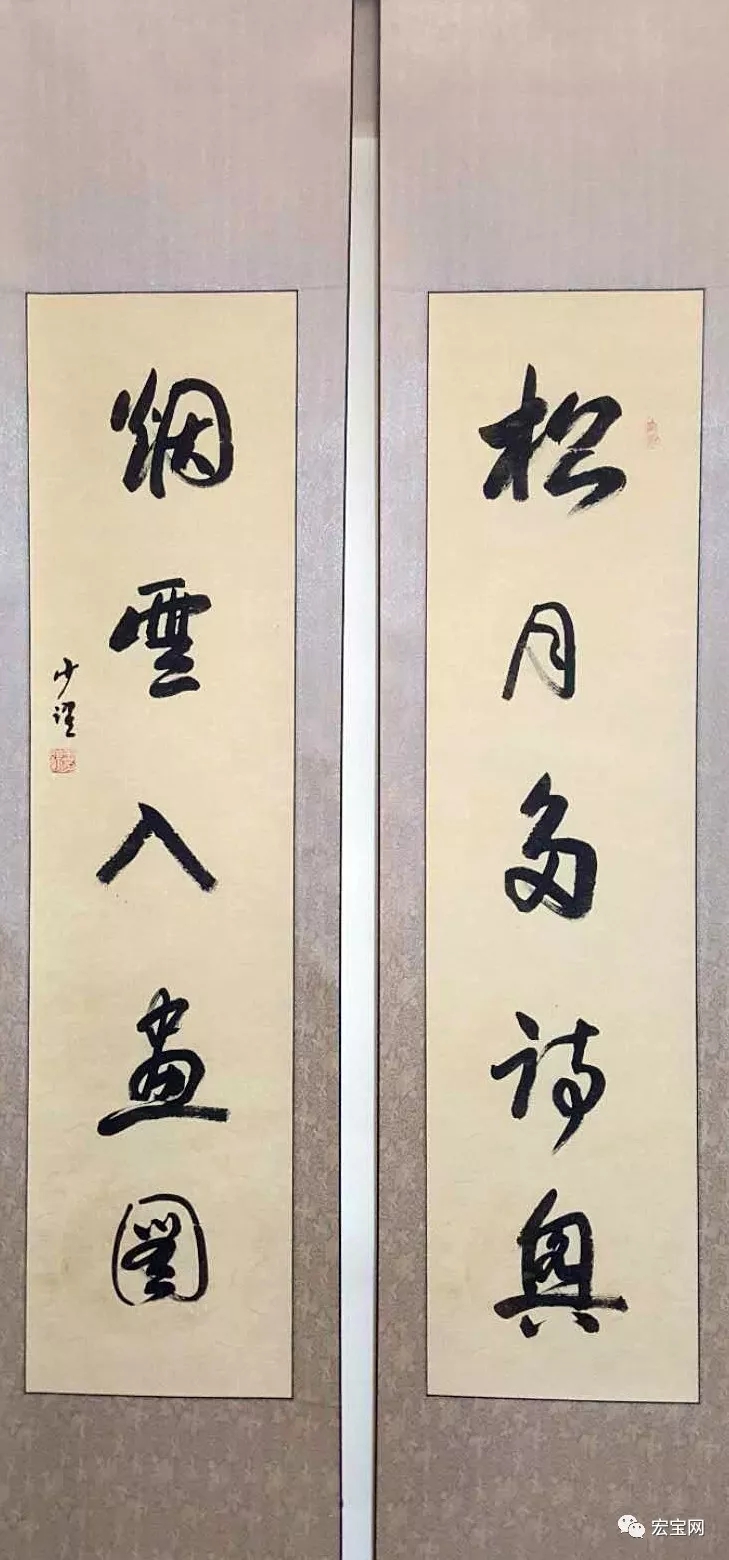 松月多詩興
烟雲入畫圖
宏宝网